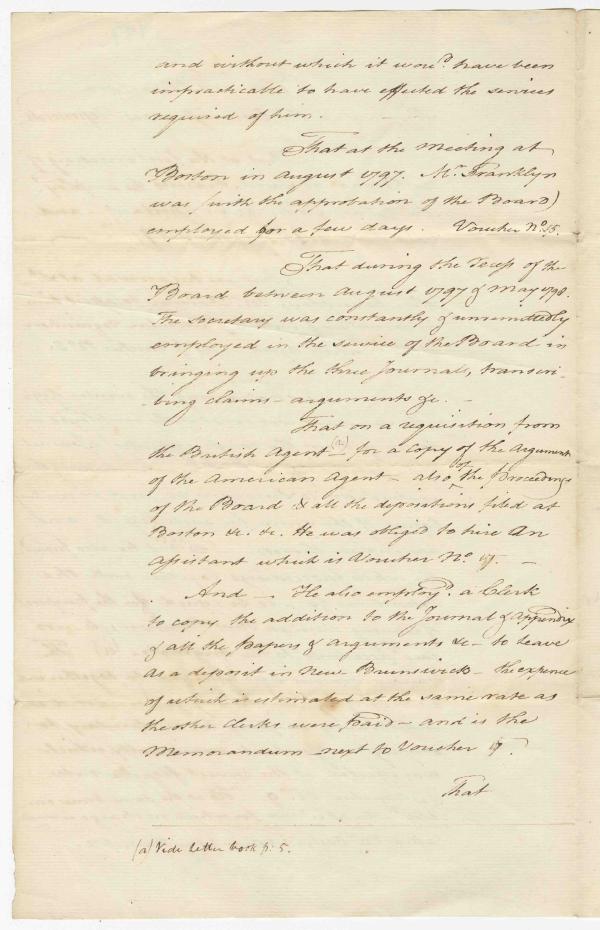 and without which it wou'd have been
impracticable to have effected the services
required of him.
That at the Meeting at
Boston in August 1797. Mr. Franklyn
was (with the approbation of the Board)
employed for a few days. Voucher No. 15.
That during the recess of the
Board between August 1797 & May 1798.
The Secretary was constantly & unremittedly
employed in the service of the Board in
bringing up the three Journals, transcri-
bing claims - arguments &c. -
That on a requisition from
the British Agent (a) - for a copy of the Arguments
of the American Agent - also of the Proceedings
of the Board & all the depositions filed at
Boston &c. &c. He was obliged to hire an
Assistant which is Voucher No. 17. -
And - He also employ'd a Clerk
to copy the addition to the Journal & Appendix
& all the Papers & arguments &c - to leave
as a deposit in New Brunswick - the expence
of which is estimated at the same rate as
the other Clerks were paid - and is the
Memorandum next to Voucher 17.
That
(a) Vide Letter book p: 5.